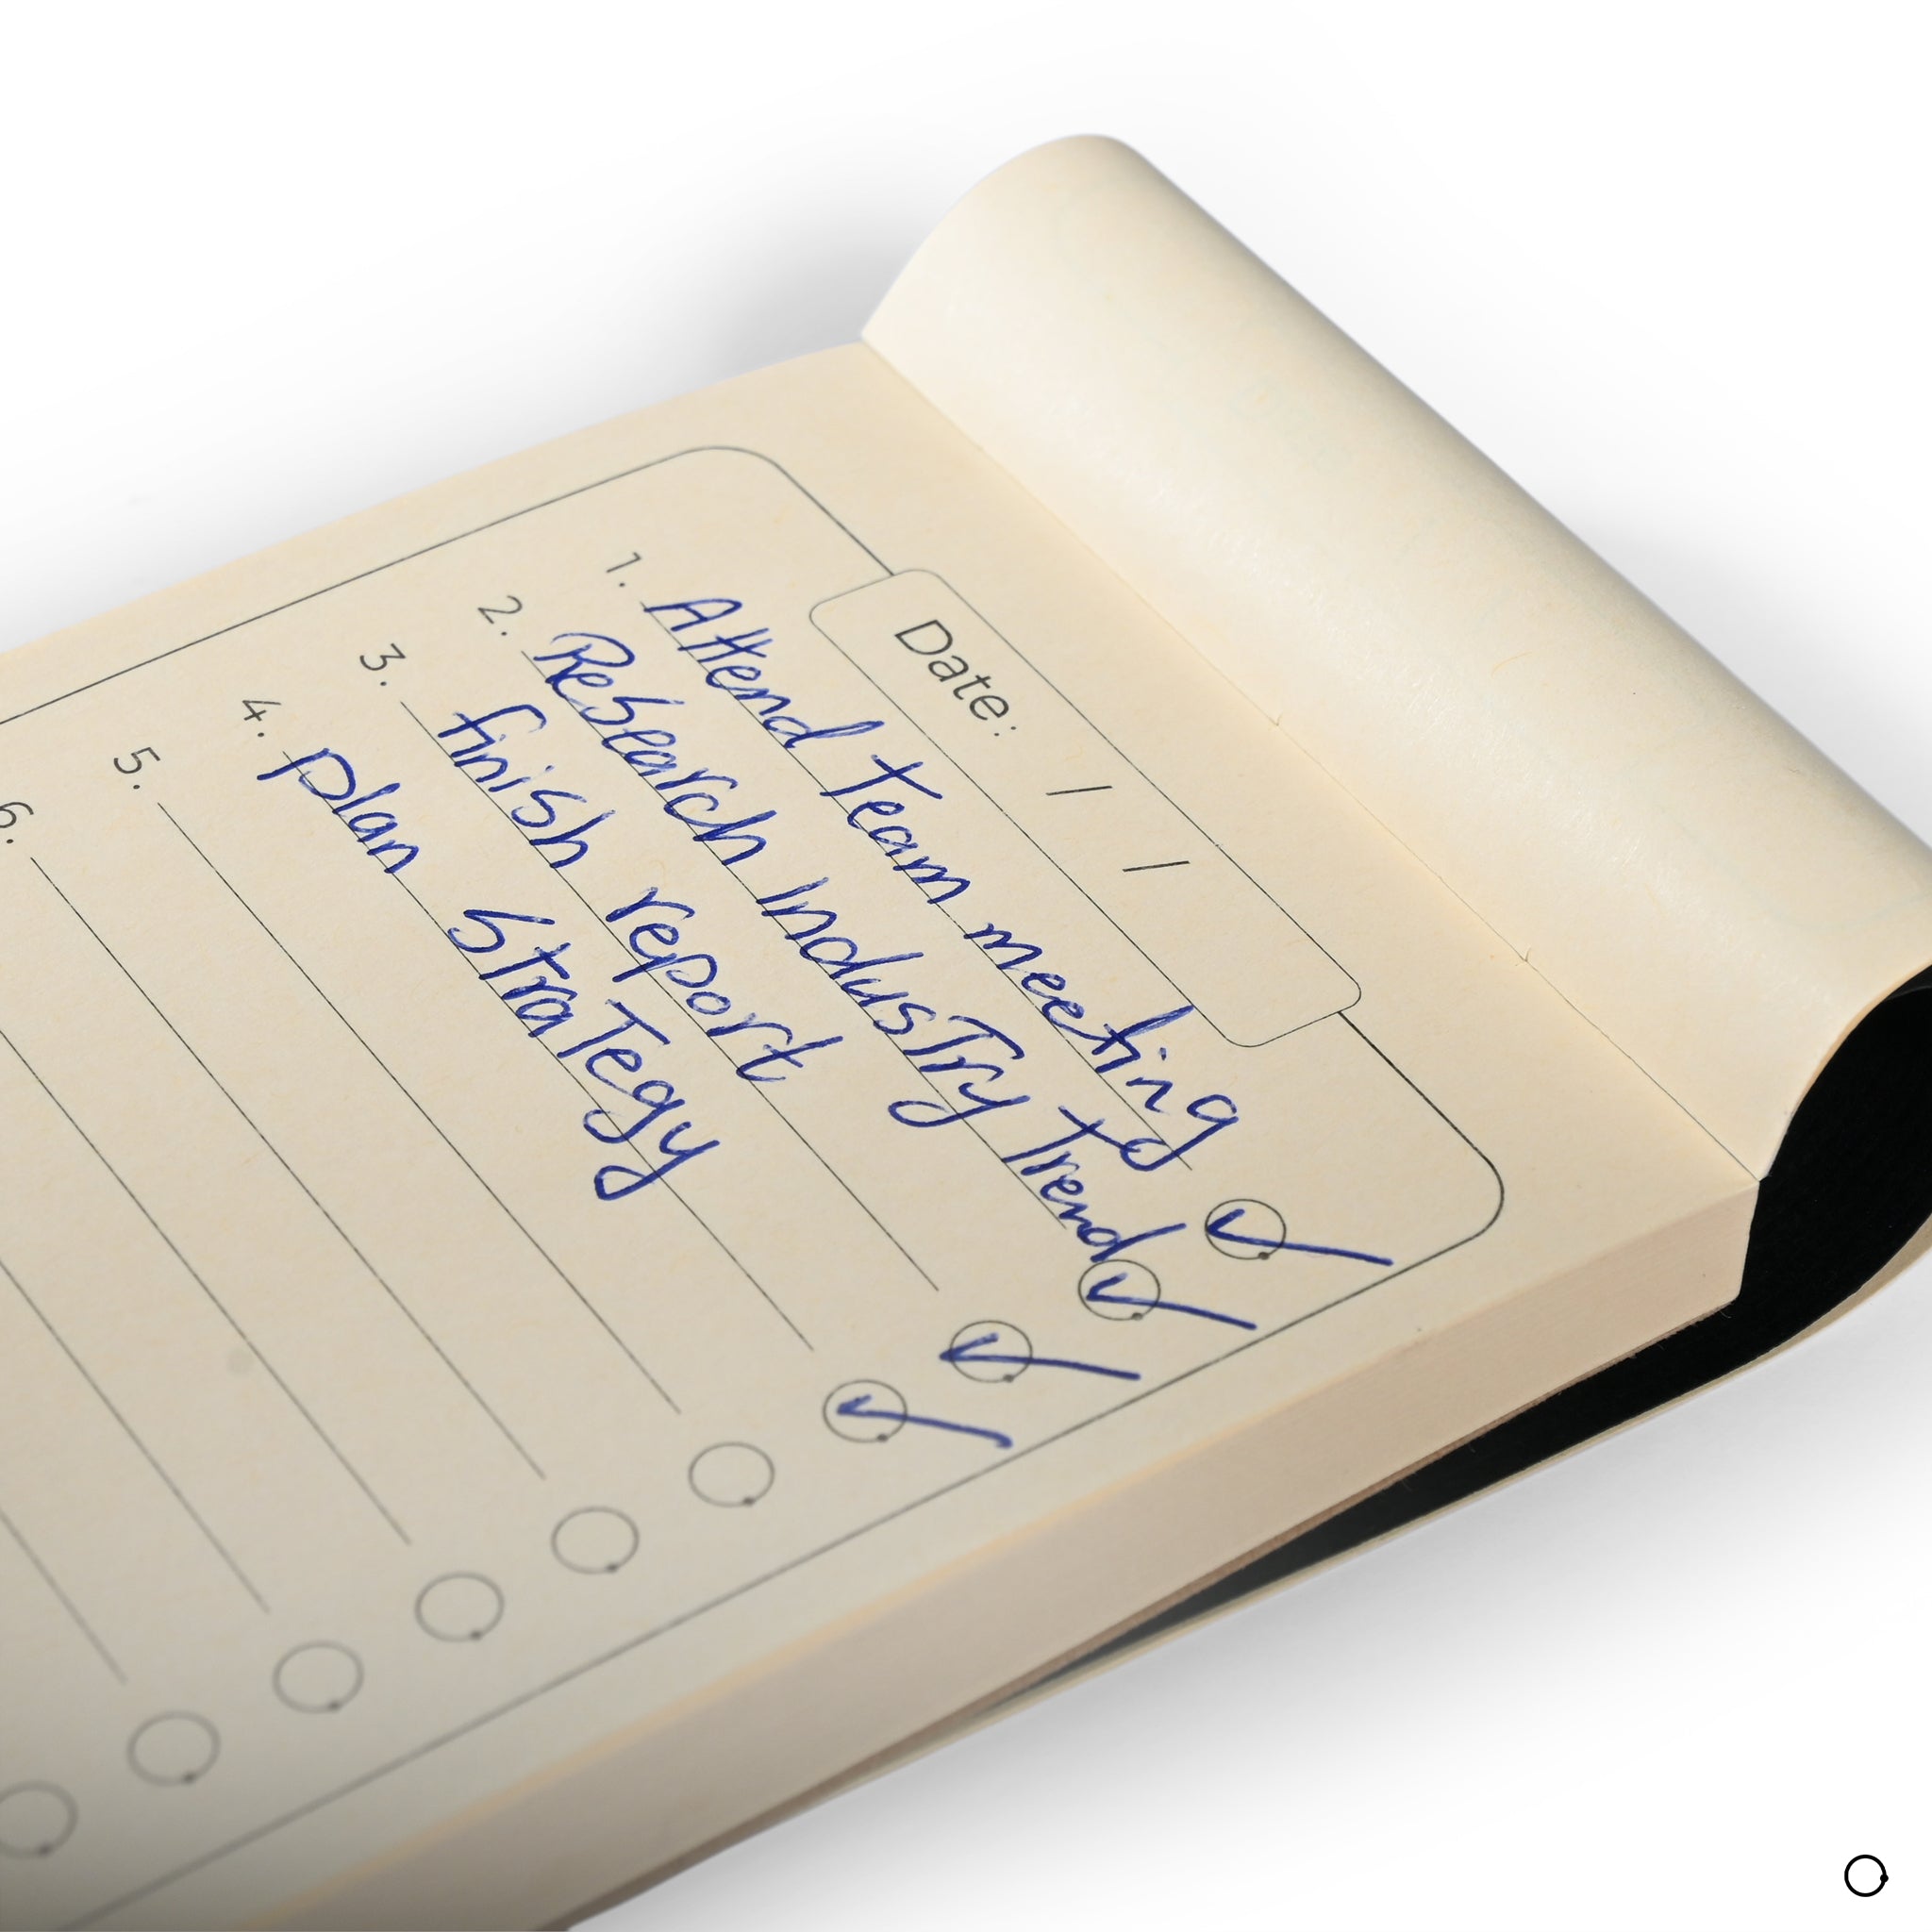 Date: / /
1. Attend team meeting
2. Research IndusTry to Trend
3. finish report
4. plan straTegy
5.
6.